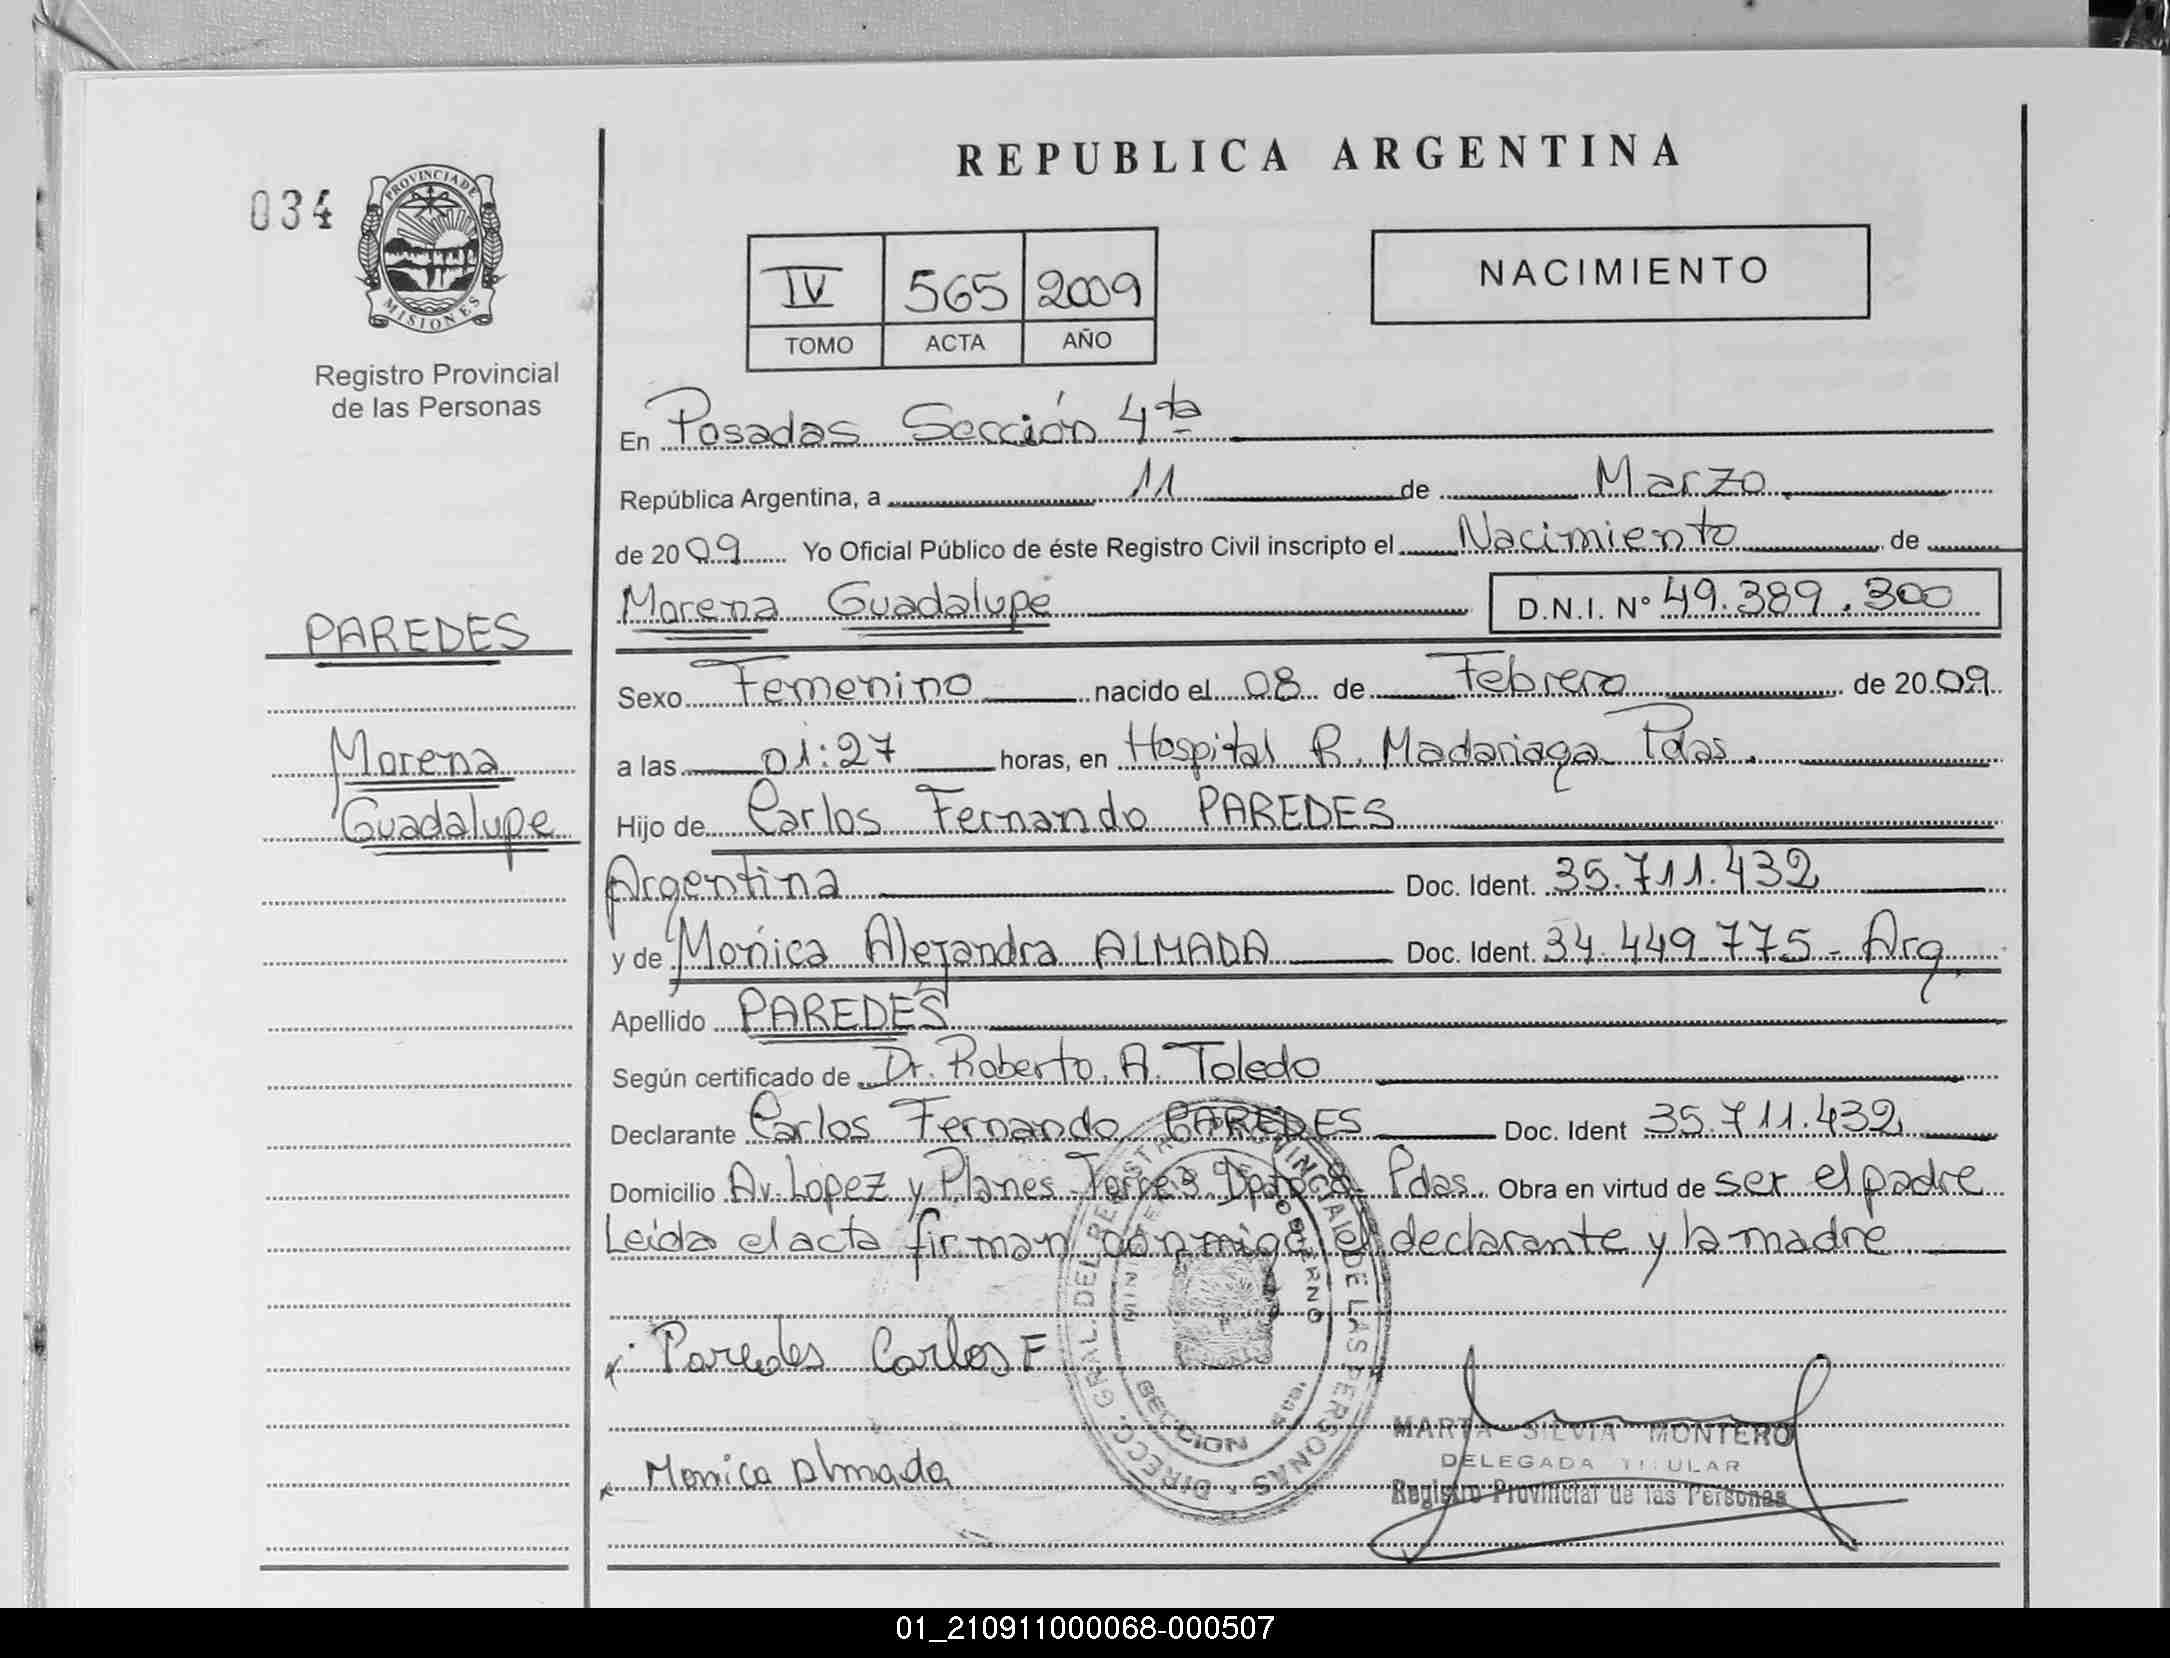 REPUBLICA ARGENTINA
034
PROVINCIA DE
MISIONES
Registro Provincial
de las Personas
IV 565 2009
TOMO ACTA AÑO
NACIMIENTO
En Posadas Sección 4ta
República Argentina, a 11 de Marzo
de 2009 Yo Oficial Público de éste Registro Civil inscripto el Nacimiento de
Morena Guadalupe D.N.I. Nº 49.389.300
PAREDES
Morena
Guadalupe
Sexo Femenino nacido el 08 de Febrero de 2009
a las 01:27 horas, en Hospital R. Madariaga Pdas.
Hijo de Carlos Fernando PAREDES
Argentina Doc. Ident. 35.711.432
y de Mónica Alejandra ALMADA Doc. Ident. 34.449.775 - Arg.
Apellido PAREDES
Según certificado de Dr. Roberto. A. Toledo
Declarante Carlos Fernando PAREDES Doc. Ident 35.711.432
Domicilio Av. López y Planes Pdas. Obra en virtud de ser el padre
Leída el acta firman conmigo el declarante y la madre
Paredes Carlos F
Monica Almada
DIRECC. GRAL. DEL REGISTRO PROVINCIAL DE LAS PERSONAS
MINISTERIO DE GOBIERNO
SECCION
MARTA SILVIA MONTERO
DELEGADA TITULAR
Registro Provincial de las Personas
01_210911000068-000507